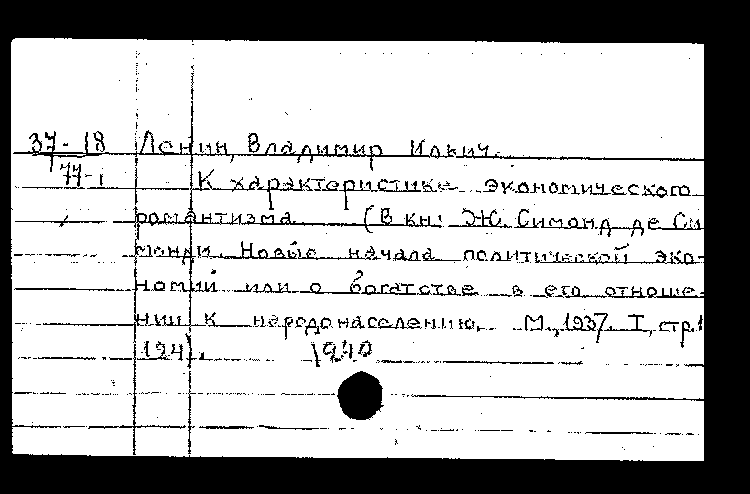 37-18 Ленин, Владимир Ильич.
77-1 К характеристике экономического
романтизма (В кн: Ж. Симонд де Си
смонди. Новые начала политической эко-
номии или о богатстве в его отноше-
нии к народонаселению. М., 1937. I, стр.1
124). 1940